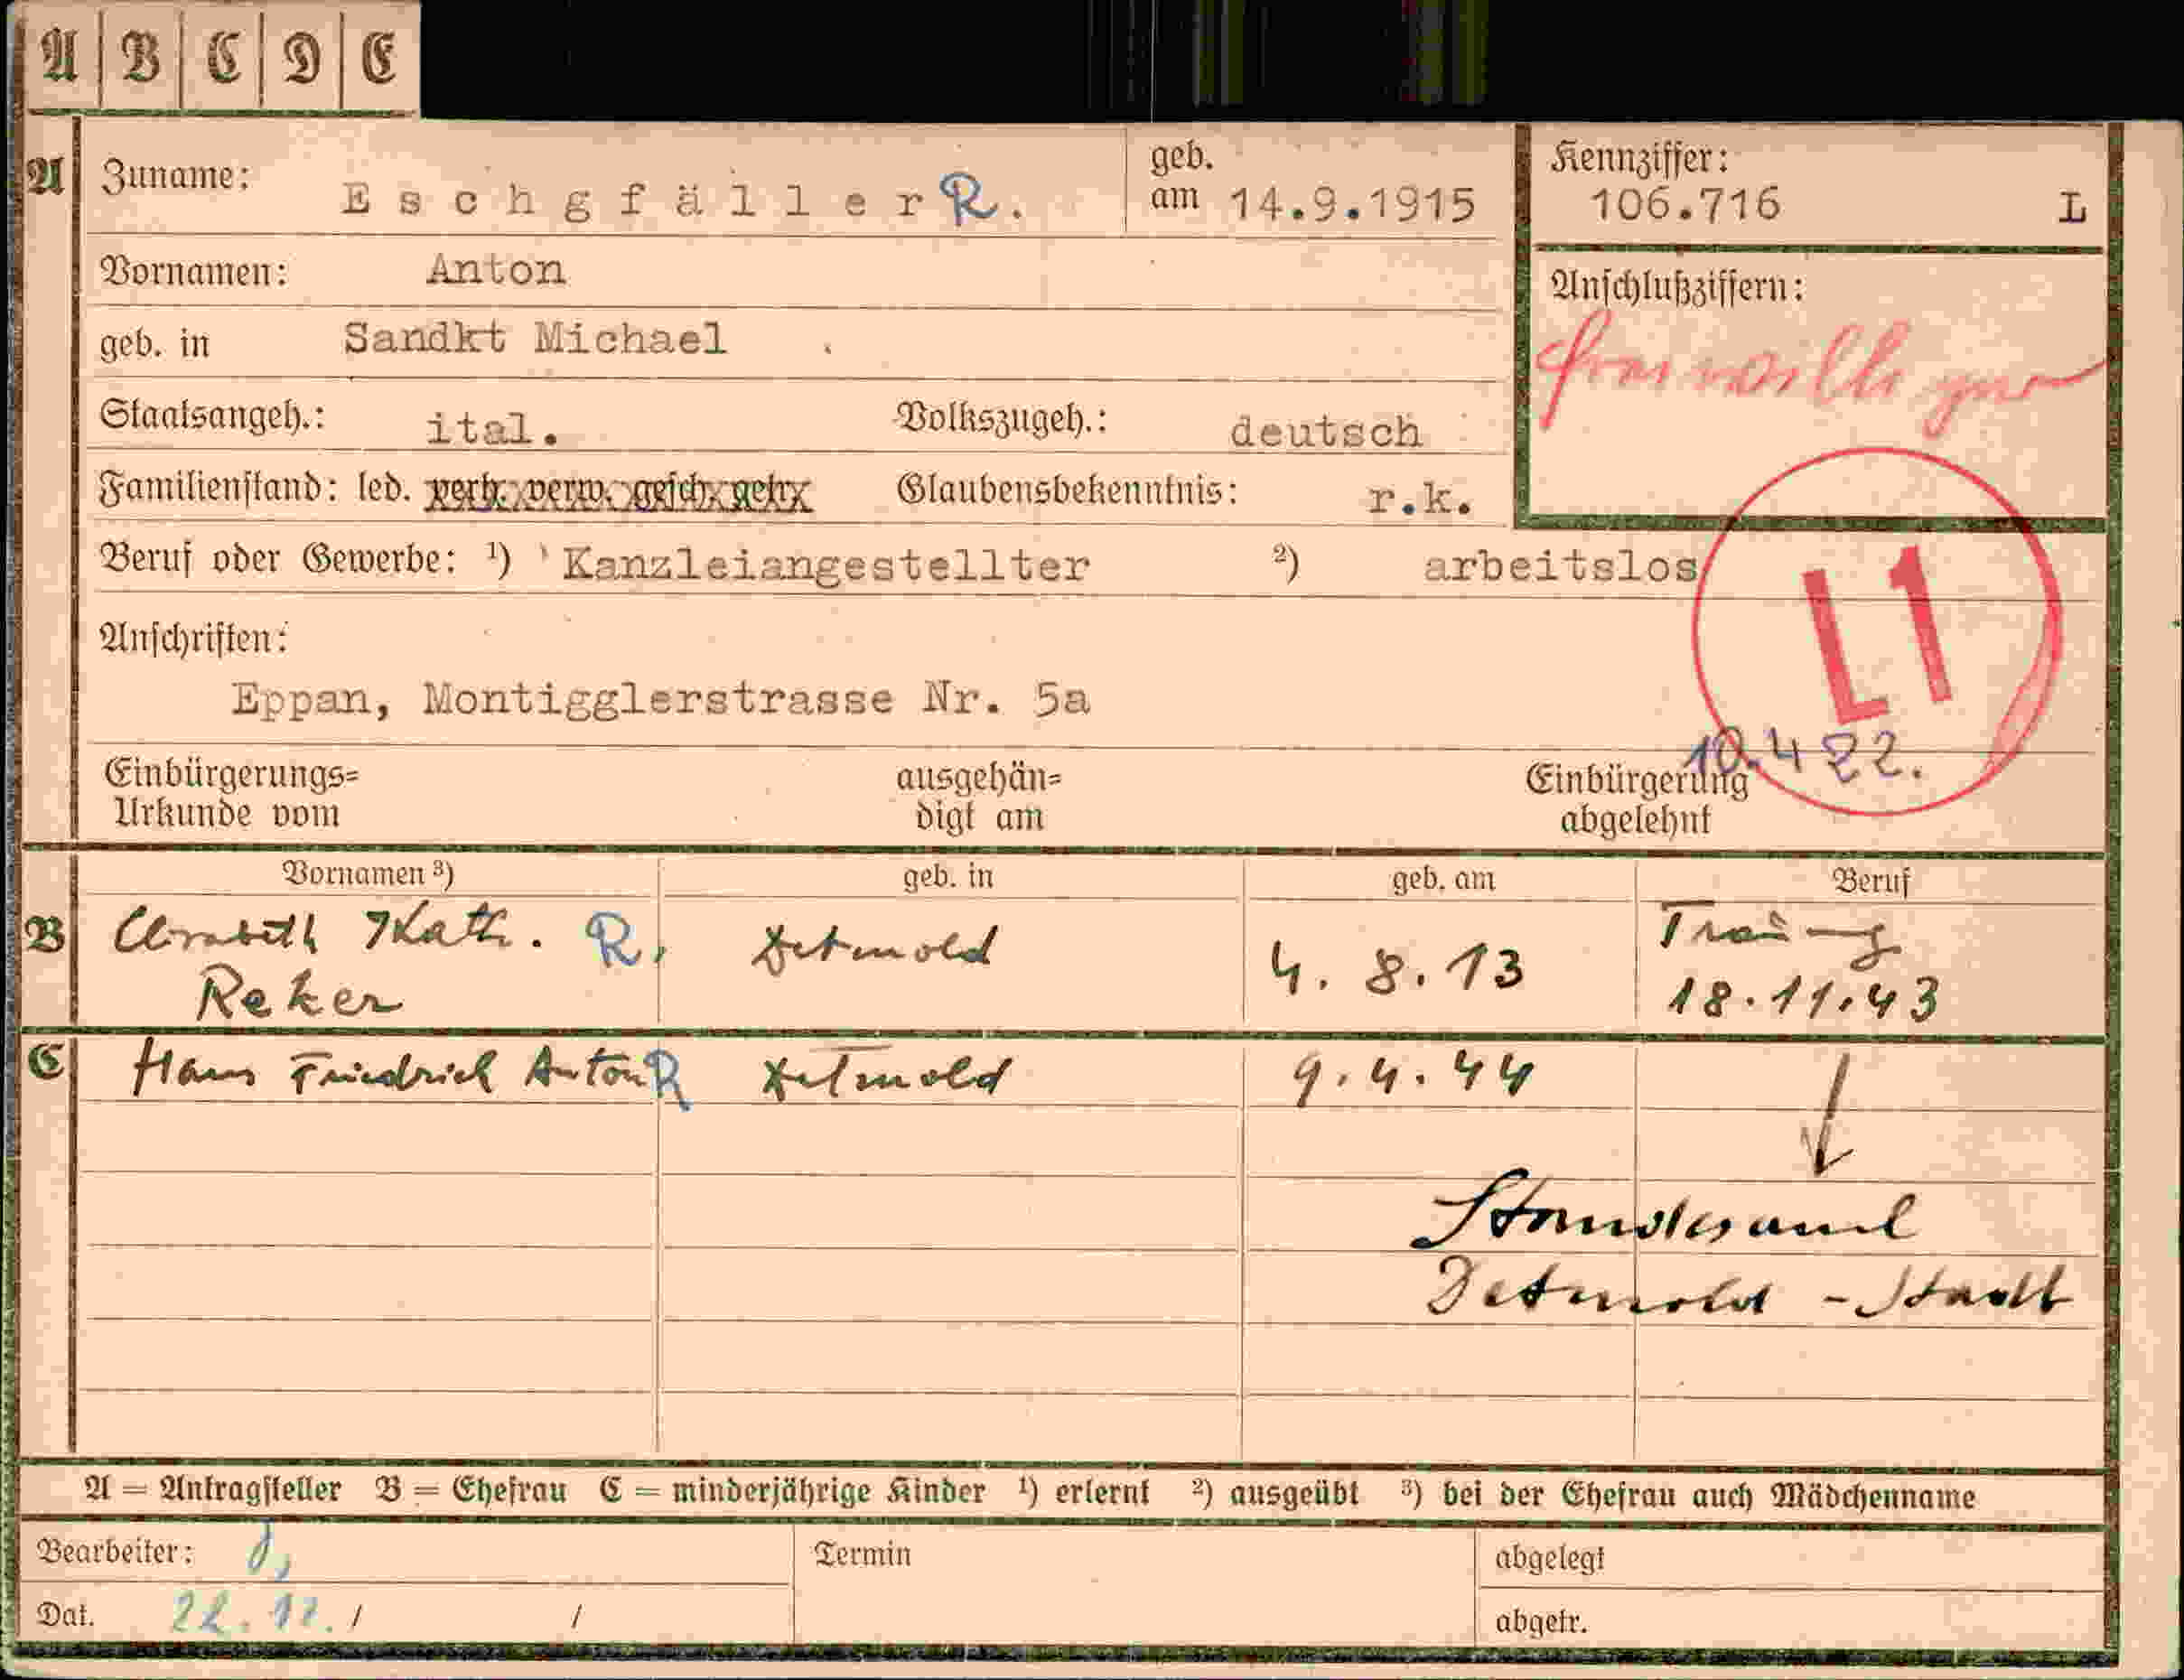 A B C D E
A Zuname: Eschgfäller R. geb. am 14.9.1915 Kennziffer: 106.716 L
Vornamen: Anton Anschlußziffern:
geb. in Sandkt Michael
Staatsangeh.: ital. Volkszugeh.: deutsch
Familienstand: led. verh. verw. gesch. getr. Glaubensbekenntnis: r.k.
Beruf oder Gewerbe: ¹) Kanzleiangestellter ²) arbeitslos
L1
Anschriften:
Eppan, Montigglerstrasse Nr. 5a
10.422.
Einbürgerungs= ausgehän= Einbürgerung
Urkunde vom digt am abgelehnt
Vornamen ³) geb. in geb. am Beruf
B Elisabeth Kath. R. Detmold 4. 8. 13 Trauung
Reker 18.11.43
C Hans Friedrich Anton R Detmold 9.4.44
Standesamt
Detmold - Stadt
A = Antragsteller B = Ehefrau C = minderjährige Kinder ¹) erlernt ²) ausgeübt ³) bei der Ehefrau auch Mädchenname
Bearbeiter: Termin abgelegt
Dat. 22.12. / / abgetr.